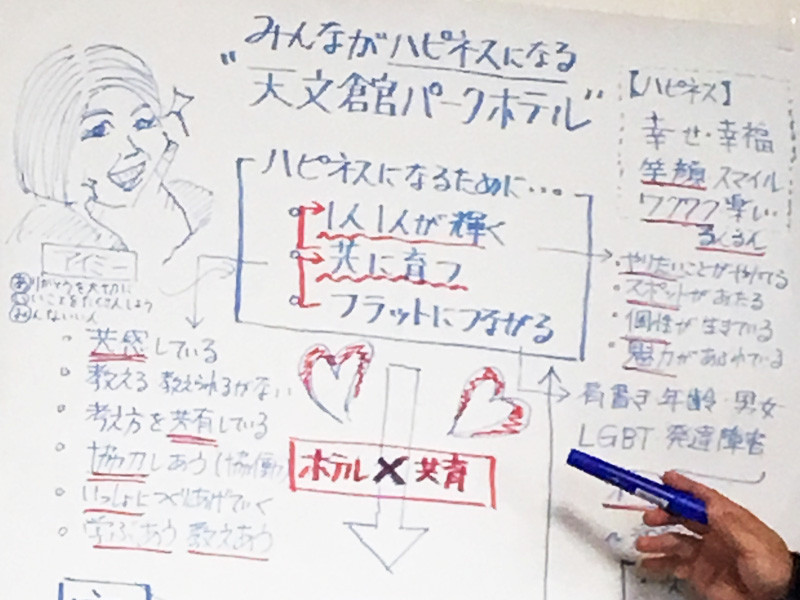 "みんながハピネスになる
天文館パークホテル"
【ハピネス】
幸せ・幸福
笑顔 スマイル
ワクワク 楽しい
るんるん
ハピネスになるために・・・
1人1人が輝く
共に育つ
フラットにつながる
アイミー
ありがとうを大切に
いいことをたくさんしよう
みんないい人
・やりたいことがやれてる
・スポットがあたる
・個性が生きている
・魅力があふれている
肩書き 年齢・男女
LGBT 発達障害
共感している
教える 教えられるがない
考え方を共有している
協力しあう(協働)
いっしょにつくりあげていく
学ぶあう 教えあう
ホテル×共育